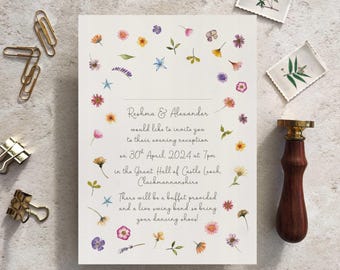 Reshma & Alexander
would like to invite you
to their evening reception
on 30th April, 2024 at 7pm
in the Great Hall of Castle Leoch,
Clackmannanshire
There will be a buffet provided
and a live swing band so bring
your dancing shoes!